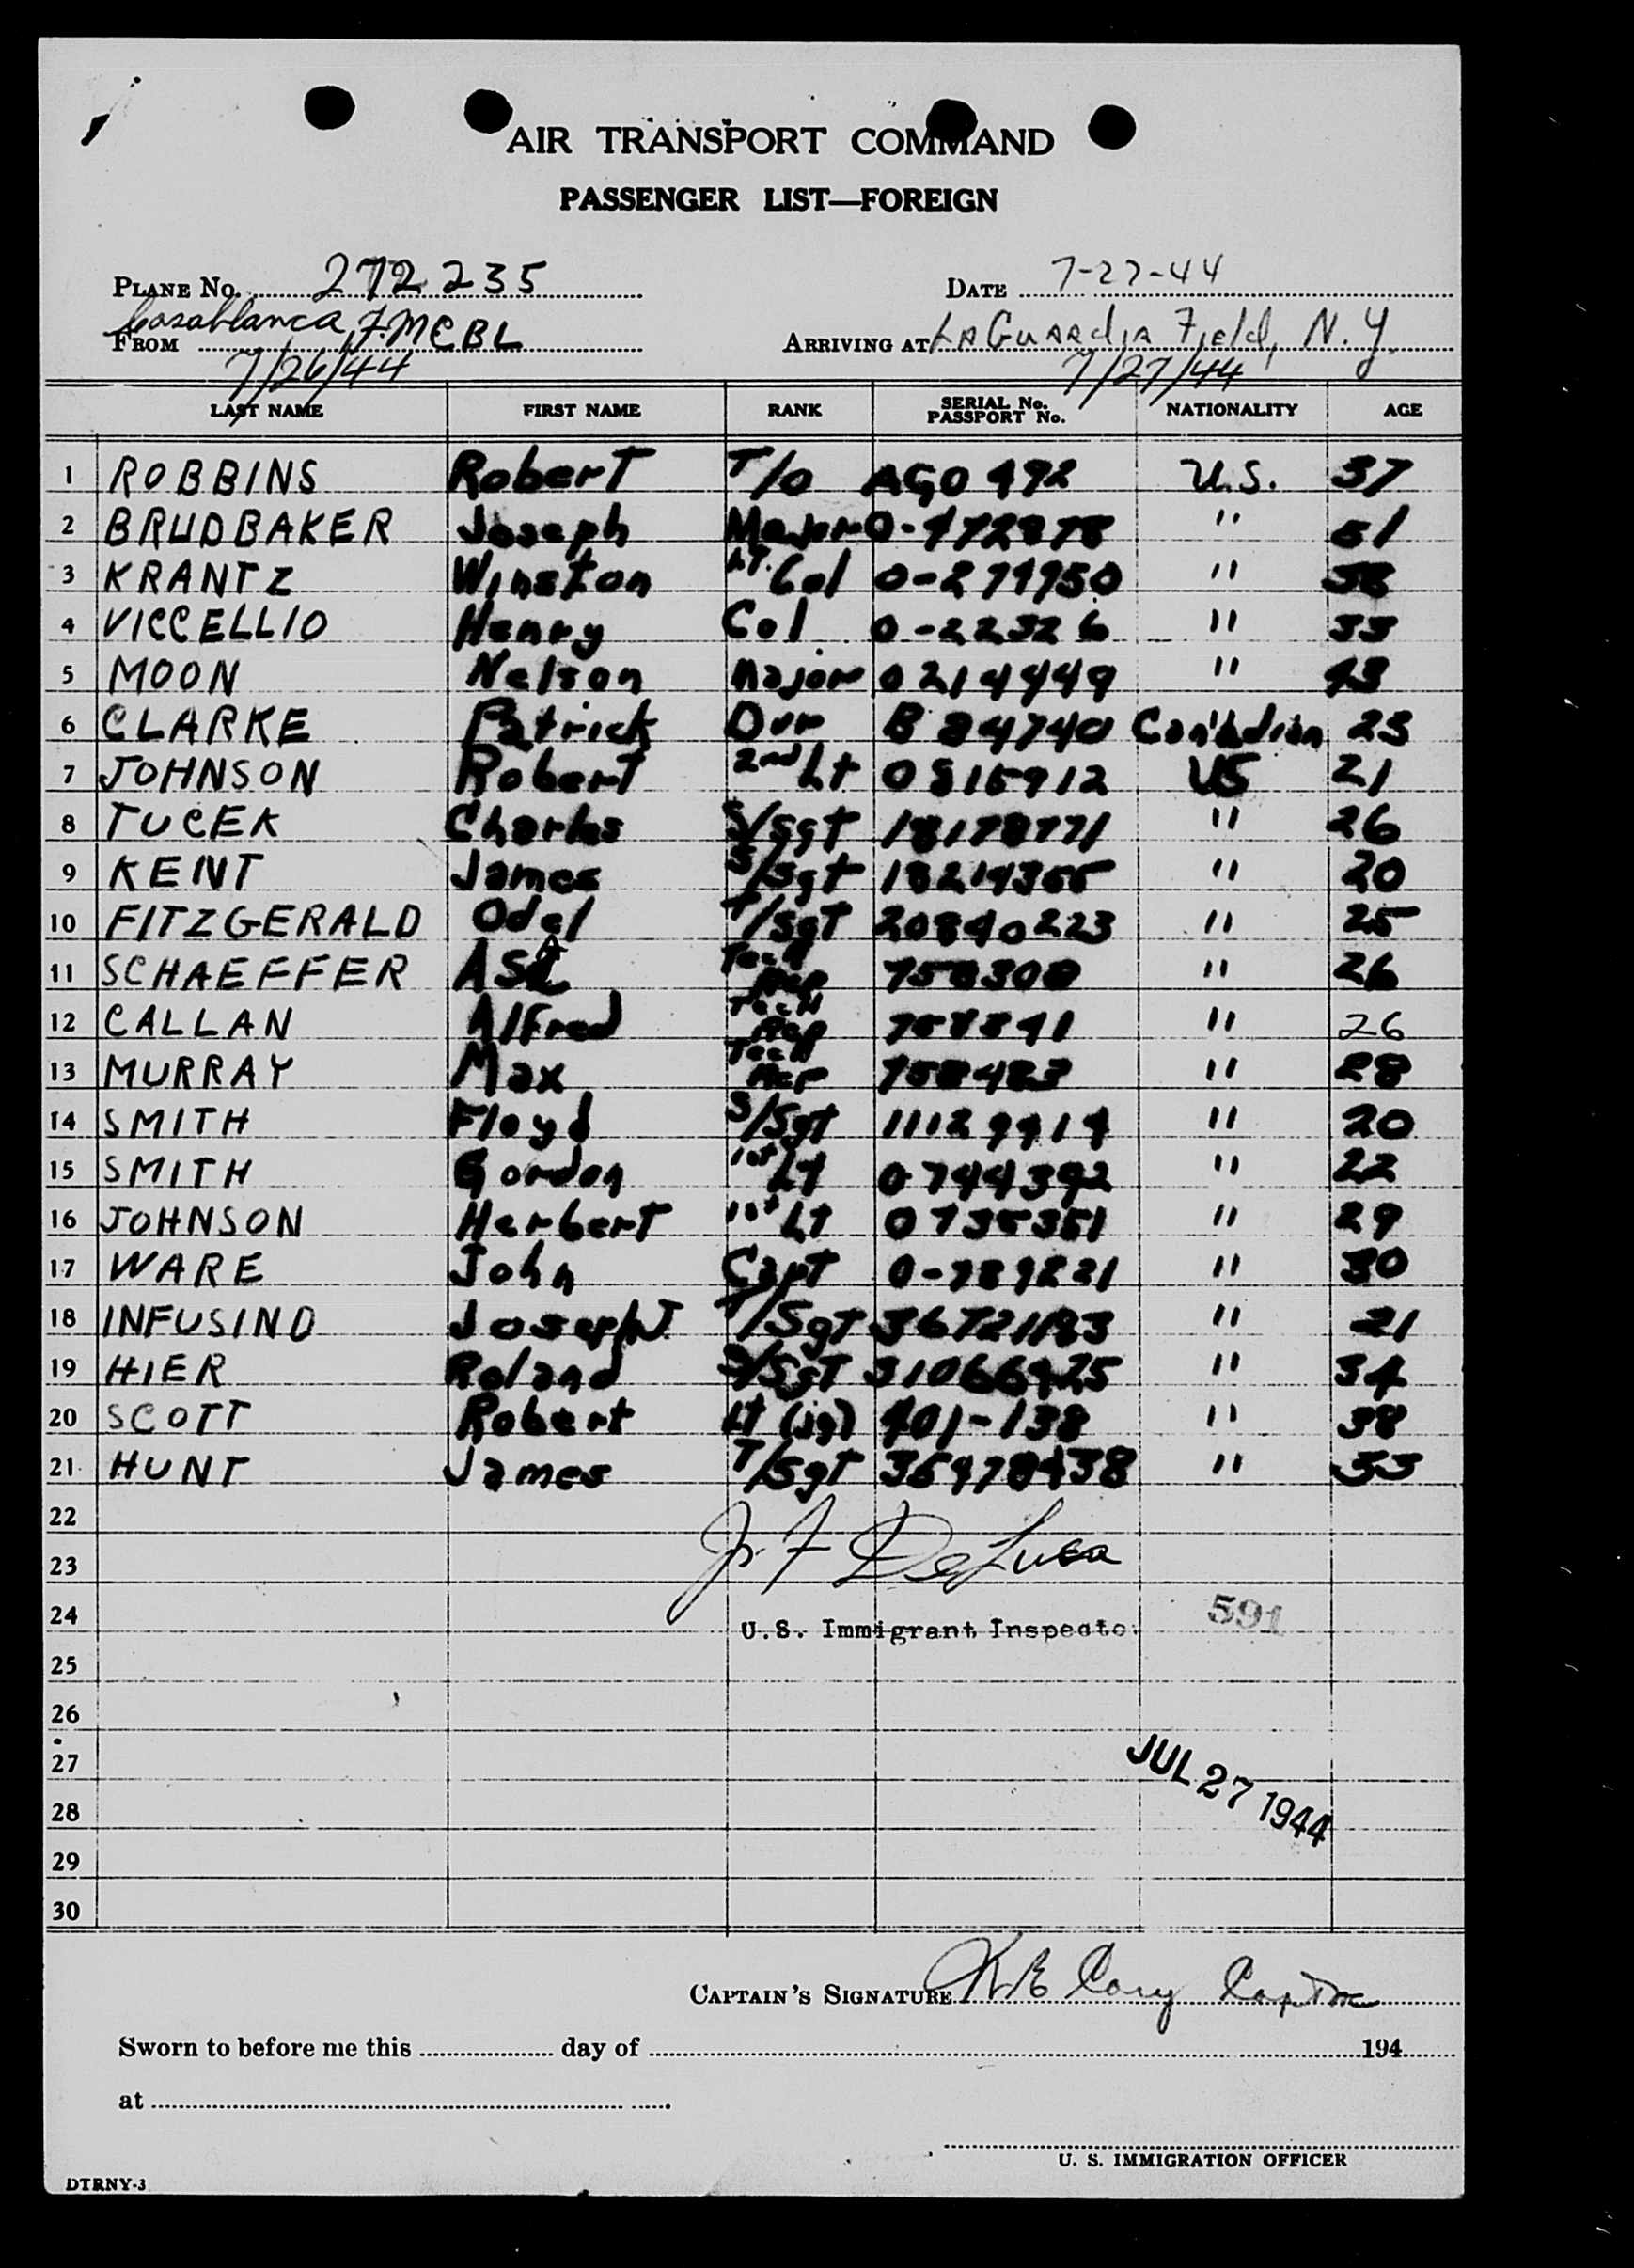 AIR TRANSPORT COMMAND
PASSENGER LIST—FOREIGN
PLANE No. 272235 DATE 7-27-44
FROM Casablanca, F.M. CBL ARRIVING AT LA GUARDIA Field, N.Y.
7/26/44 7/27/44
LAST NAME FIRST NAME RANK SERIAL No. PASSPORT No. NATIONALITY AGE
1 ROBBINS Robert T/O AGO 492 U.S. 37
2 BRUDBAKER Joseph Major "
3 KRANTZ Winston Lt. Col "
4 VICCELLIO Henry Col 0-22326 "
5 MOON Nelson Major 0214449 " 43
6 CLARKE Patrick Dvr B 84740 Canadian 23
7 JOHNSON Robert 2nd Lt US 21
8 TUCEK Charles S/Sgt 18178771 " 26
9 KENT James S/Sgt " 20
10 FITZGERALD Odel T/Sgt 20840223 " 25
11 SCHAEFFER Asa Tech Rep 758308 " 26
12 CALLAN Alfred Tech Rep " 26
13 MURRAY Max Tech Rep 758483 " 28
14 SMITH Floyd S/Sgt 11129914 " 20
15 SMITH Gordon 1st Lt 0744392 " 22
16 JOHNSON Herbert 1st Lt 0735351 " 29
17 WARE John Capt 0-789221 " 30
18 INFUSINO Joseph J. T/Sgt " 21
19 HIER Roland S/Sgt 31066425 " 34
20 SCOTT Robert Lt (jg) 401-138 " 38
21 HUNT James T/Sgt 35478438 " 33
22
J. F. DeLuca
23
24 U.S. Immigrant Inspecto 591
25
26
27
JUL 27 1944
28
29
30
CAPTAIN'S SIGNATURE
Sworn to before me this day of 194
at
U. S. IMMIGRATION OFFICER
DTRNY-3